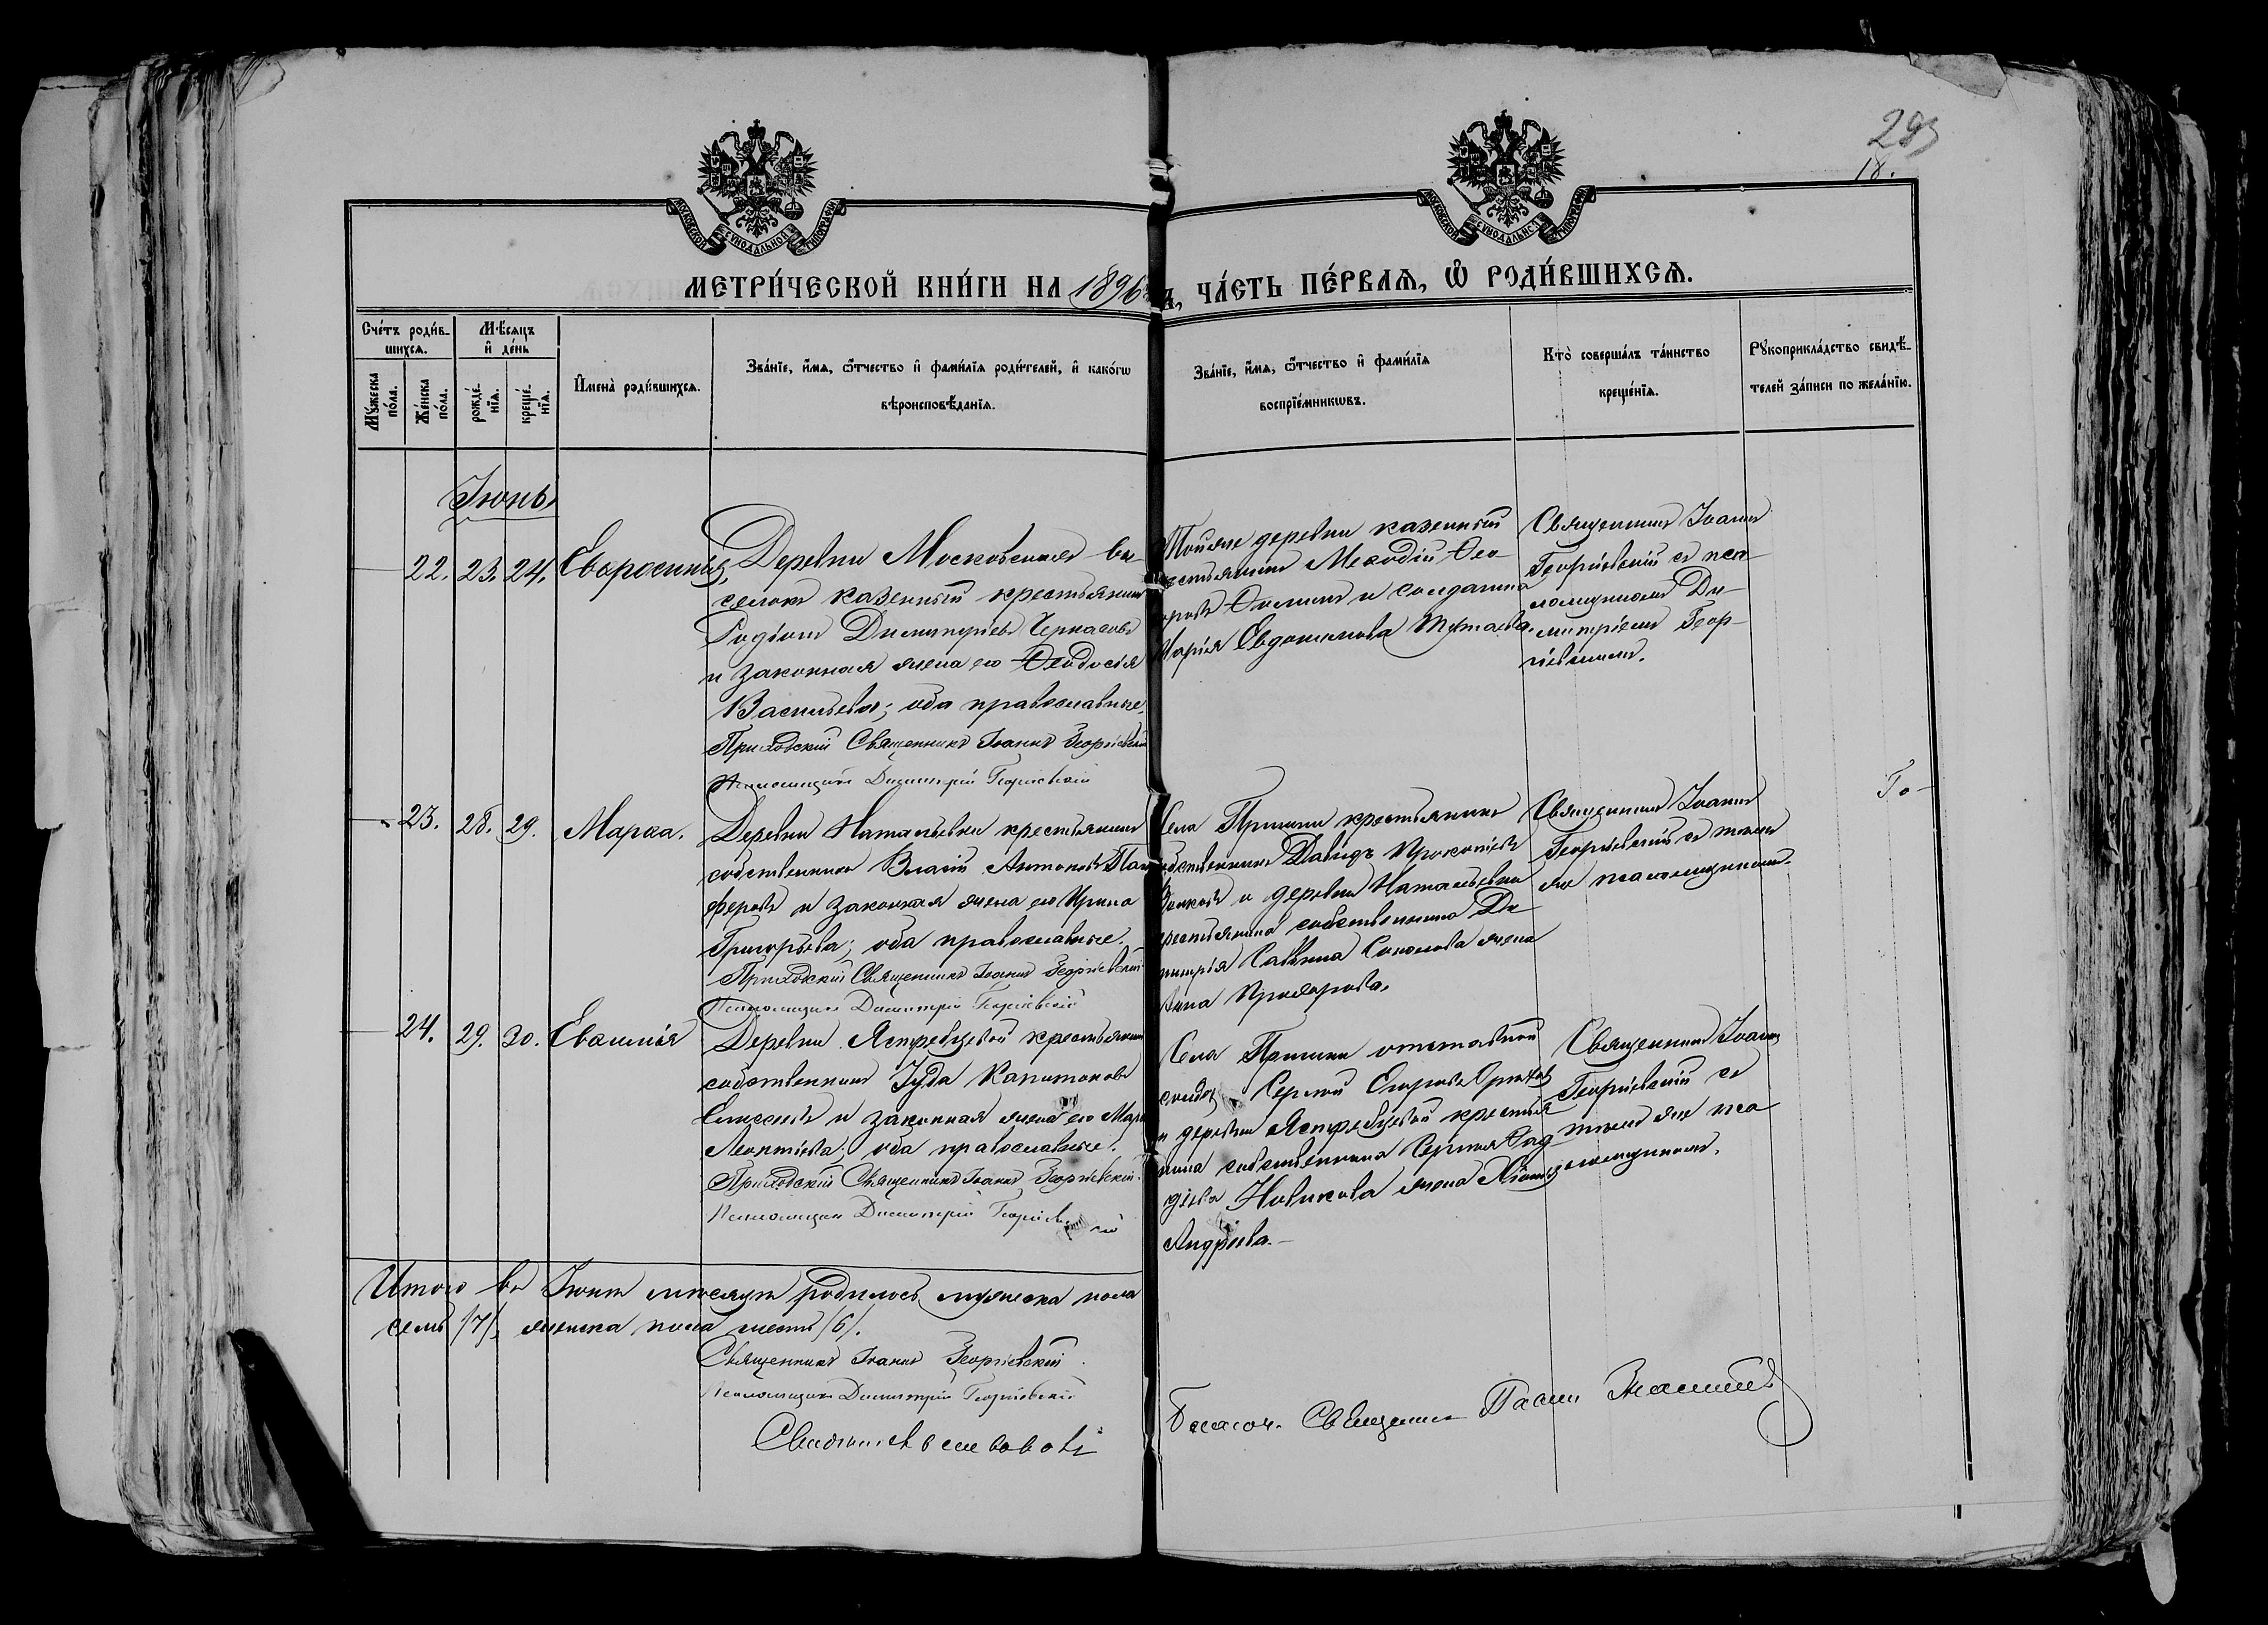 293
18.
МОСКОВСКОЙ СѴНОДАЛЬНОЙ ТИПОГРАФІИ
МОСКОВСКОЙ СѴНОДАЛЬНОЙ ТИПОГРАФІИ
МЕТРИ́ЧЕСКОЙ КНИ́ГИ НА 1896
А, ЧА́СТЬ ПЕ́РВАѦ, Ѡ РОДИ́ВШИХСѦ.
Сче́тъ роди́в-
шихсѧ.
Мꙋ́жеска по́ла.
Же́нска по́ла.
Мѣ́сѧцъ
и҆ де́нь
рожде́-нїѧ.
креще́-нїѧ.
И҆мена̀ роди́вшихсѧ.
Зва́нїе, и҆́мѧ, ѻ҆́тчество и҆ фами́лїѧ роди́телей, и҆ како́гѡ
вѣроисповѣ́данїѧ.
Зва́нїе, и҆́мѧ, ѻ҆́тчество и҆ фами́лїѧ
воспрїе́мникѡвъ.
Кто̀ соверша́лъ та́инство
креще́нїѧ.
Рꙋкоприкла́дство свидѣ́-
телей за́писи по жела́нїю.
Іюнь
22. 23. 24. Евфросинія,
Деревни Московскихъ вы
селокъ казенный крестьянинъ
Родіонъ Димитріевъ Черкасовъ
и законная жена его Ѳеодосія
Васильева; оба православные.
Приходскій Священникъ Іоаннъ Георгіевскій
Псаломщикъ Димитрій Георгіевскій
Тойже деревни казенный
крестьянинъ Меѳодій Ѳео
доровъ и солдатка
Марія Евдокимова
Священникъ Іоаннъ
Георгіевскій съ пса
ломщикомъ Ди-
митріемъ Геор-
гіевскимъ.
23. 28. 29. Марѳа.
Деревни Натальевки крестьянинъ
собственникъ Власій Антоновъ Пан
феровъ и законная жена его Ирина
Григорьева; оба православные.
Приходскій Священникъ Іоаннъ Георгіевскій
Псаломщикъ Димитрій Георгіевскій
Села крестьянинъ
собственникъ Давидъ Прокопіевъ
Волковъ и деревни Натальевки
крестьянина собственника Ди
митрія Саввина Соколова жена
Анна Прохорова.
Священникъ Іоаннъ
Георгіевскій съ тѣмъ
же псаломщикомъ.
24. 29. 30. Евѳимія
Деревни Ястребцевой крестьянинъ
собственникъ Іуда Капитоновъ
Елисеевъ и законная жена его Марѳа
Леонтіева; оба православные.
Приходскій Священникъ Іоаннъ Георгіевскій
Псаломщикъ Димитрій Георгіевскій
Села отставной
солдатъ Сергій Егоровъ
и деревни Ястребцевой крестья
нина собственника Сергія
Новикова жена
Андреева.
Священникъ Іоаннъ
Георгіевскій съ
тѣмъ же пса
ломщикомъ.
Итого въ Іюнѣ мѣсяцѣ родилось мужеска пола
семь /7/, женска пола шесть /6/.
Священникъ Іоаннъ Георгіевскій
Псаломщикъ Димитрій Георгіевскій
Свидѣтельствовалъ
Благоч. Священникъ